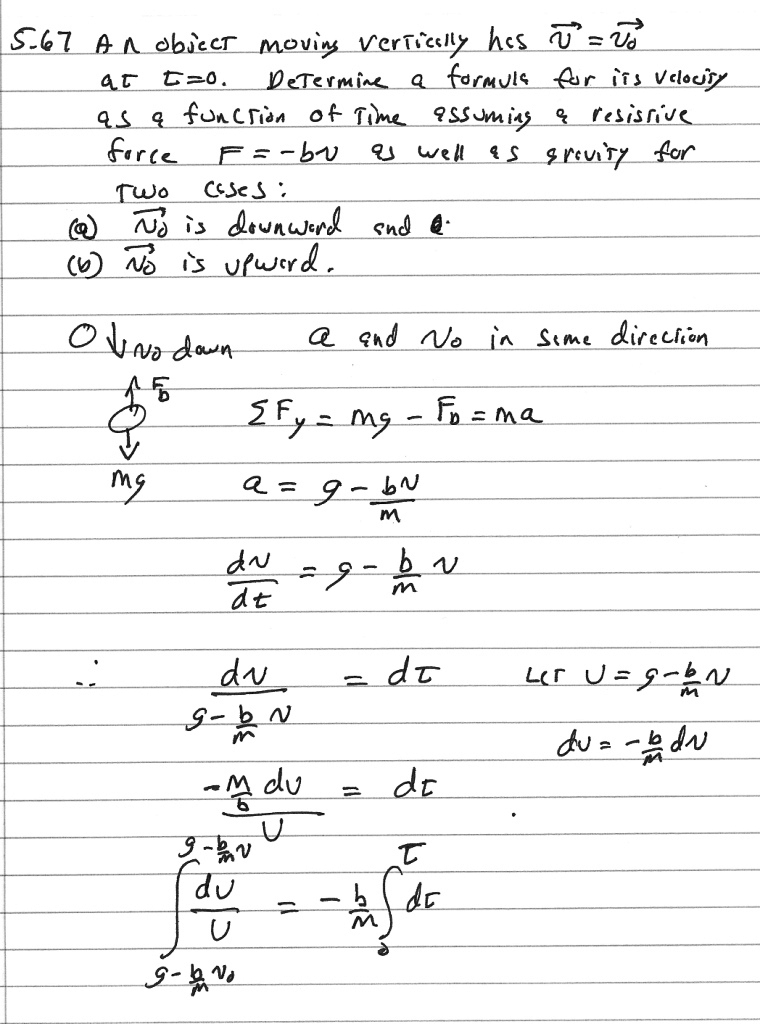 5-67 An object moving vertically has v⃗ = v⃗₀
at t=0. Determine a formula for its velocity
as a function of time assuming a resistive
force F = -bv as well as gravity for
two cases:
(a) v⃗₀ is downward and
(b) v⃗₀ is upward.
↓ v₀ down a and v₀ in same direction
↑ F_D
ΣF_y = mg - F_D = ma
↓
mg a = g - bv/m
dv/dt = g - b/m v
∴ dv/(g - b/m v) = dt Let U = g - b/m v
du = -b/m dv
(-m/b du)/U = dt
∫_{g - b/m v₀}^{g - b/m v} du/U = -b/m ∫_0^t dt